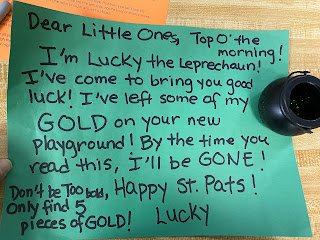 Dear Little Ones, Top O' the
morning!
I'm Lucky the Leprechaun!
I've come to bring you good
luck! I've left some of my
GOLD on your new
playground! By the time you
read this, I'll be GONE!
Don't be Too bold, Happy St. Pats!
Only find 5
pieces of GOLD! Lucky